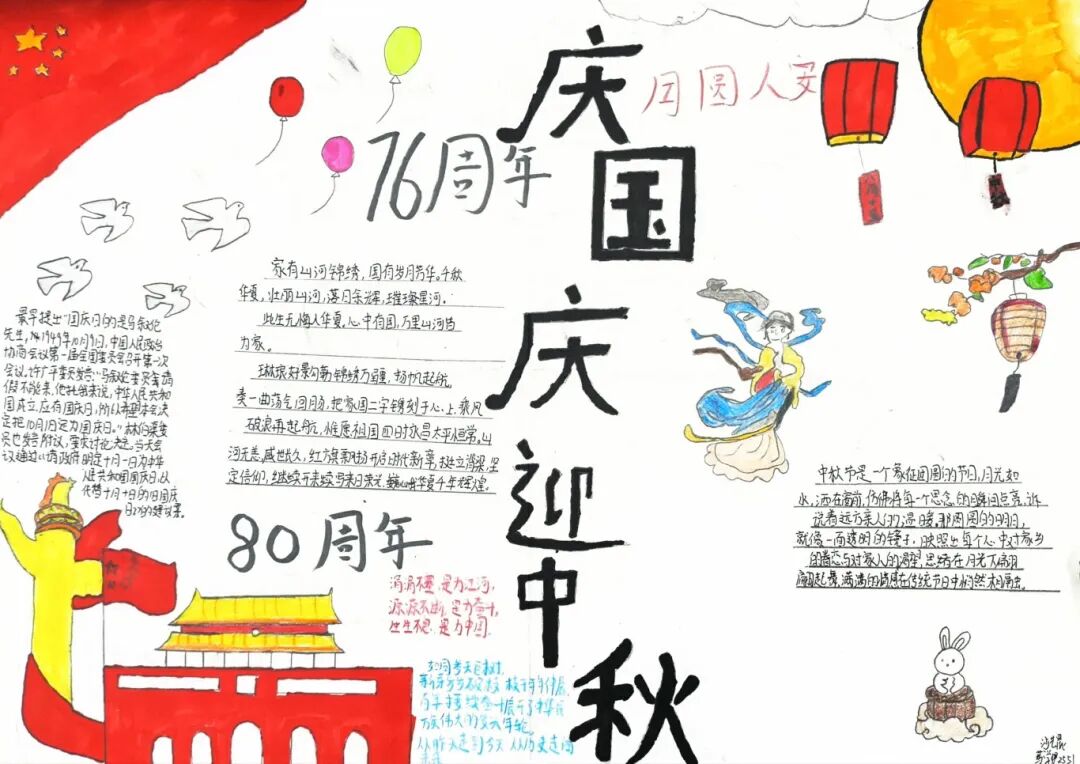 庆国庆迎中秋
月圆人安
76周年
家有山河锦绣，国有岁月芳华。千秋
华夏，壮丽山河，落日余辉，璀璨星河。
此生无悔入华夏，心中有国，万里山河皆
为家。
琳琅好景勾勒锦绣万疆，扬帆起航。
奏一曲荡气回肠，把家国二字镌刻于心上，乘风
破浪再起航，惟愿祖国四时永昌太平恒常。山
河无恙，盛世长久，红方旗飘扬开启时代新章，挺立脊梁，坚
定信仰，继续开来续写来日荣光，华夏千年辉煌。
最早提出"国庆日"的是马叙伦
先生，1949年10月9日，中国人民政治
协商会议第一届全国委员会召开第一次
会议，许广平委员发言："马叙伦委员请病
假不能来，他托我来说，中华人民共和
国成立，应有国庆日，所以希望本会决
定把10月1日定为国庆日。"林伯渠委
员也发言附议，要求讨论决定。当天会
议通过《请政府明定十月一日为中华
人民共和国国庆日，以
代替十月十日的旧国庆
日》的建议案。
80周年
涓涓不壅，是为江河，
源源不断，是为奋斗，
生生不息，是为中国。
如同参天巨树，
百年接续奋斗展开了中华民
族伟大的
从昨天走到今天 从历史走向
未来
中秋节是一个象征团圆的节日，月光如
水，洒在窗前，仿佛将每一个思念的瞬间点亮，诉
说着远方亲人的温暖，那圆圆的明月，
就像一面透明的镜子，映照出每个人心中对家乡
的眷恋与对家人的渴望，思绪在月光下翩翩
起舞，满满的情感在传统节日中悄然相融。
八月十五